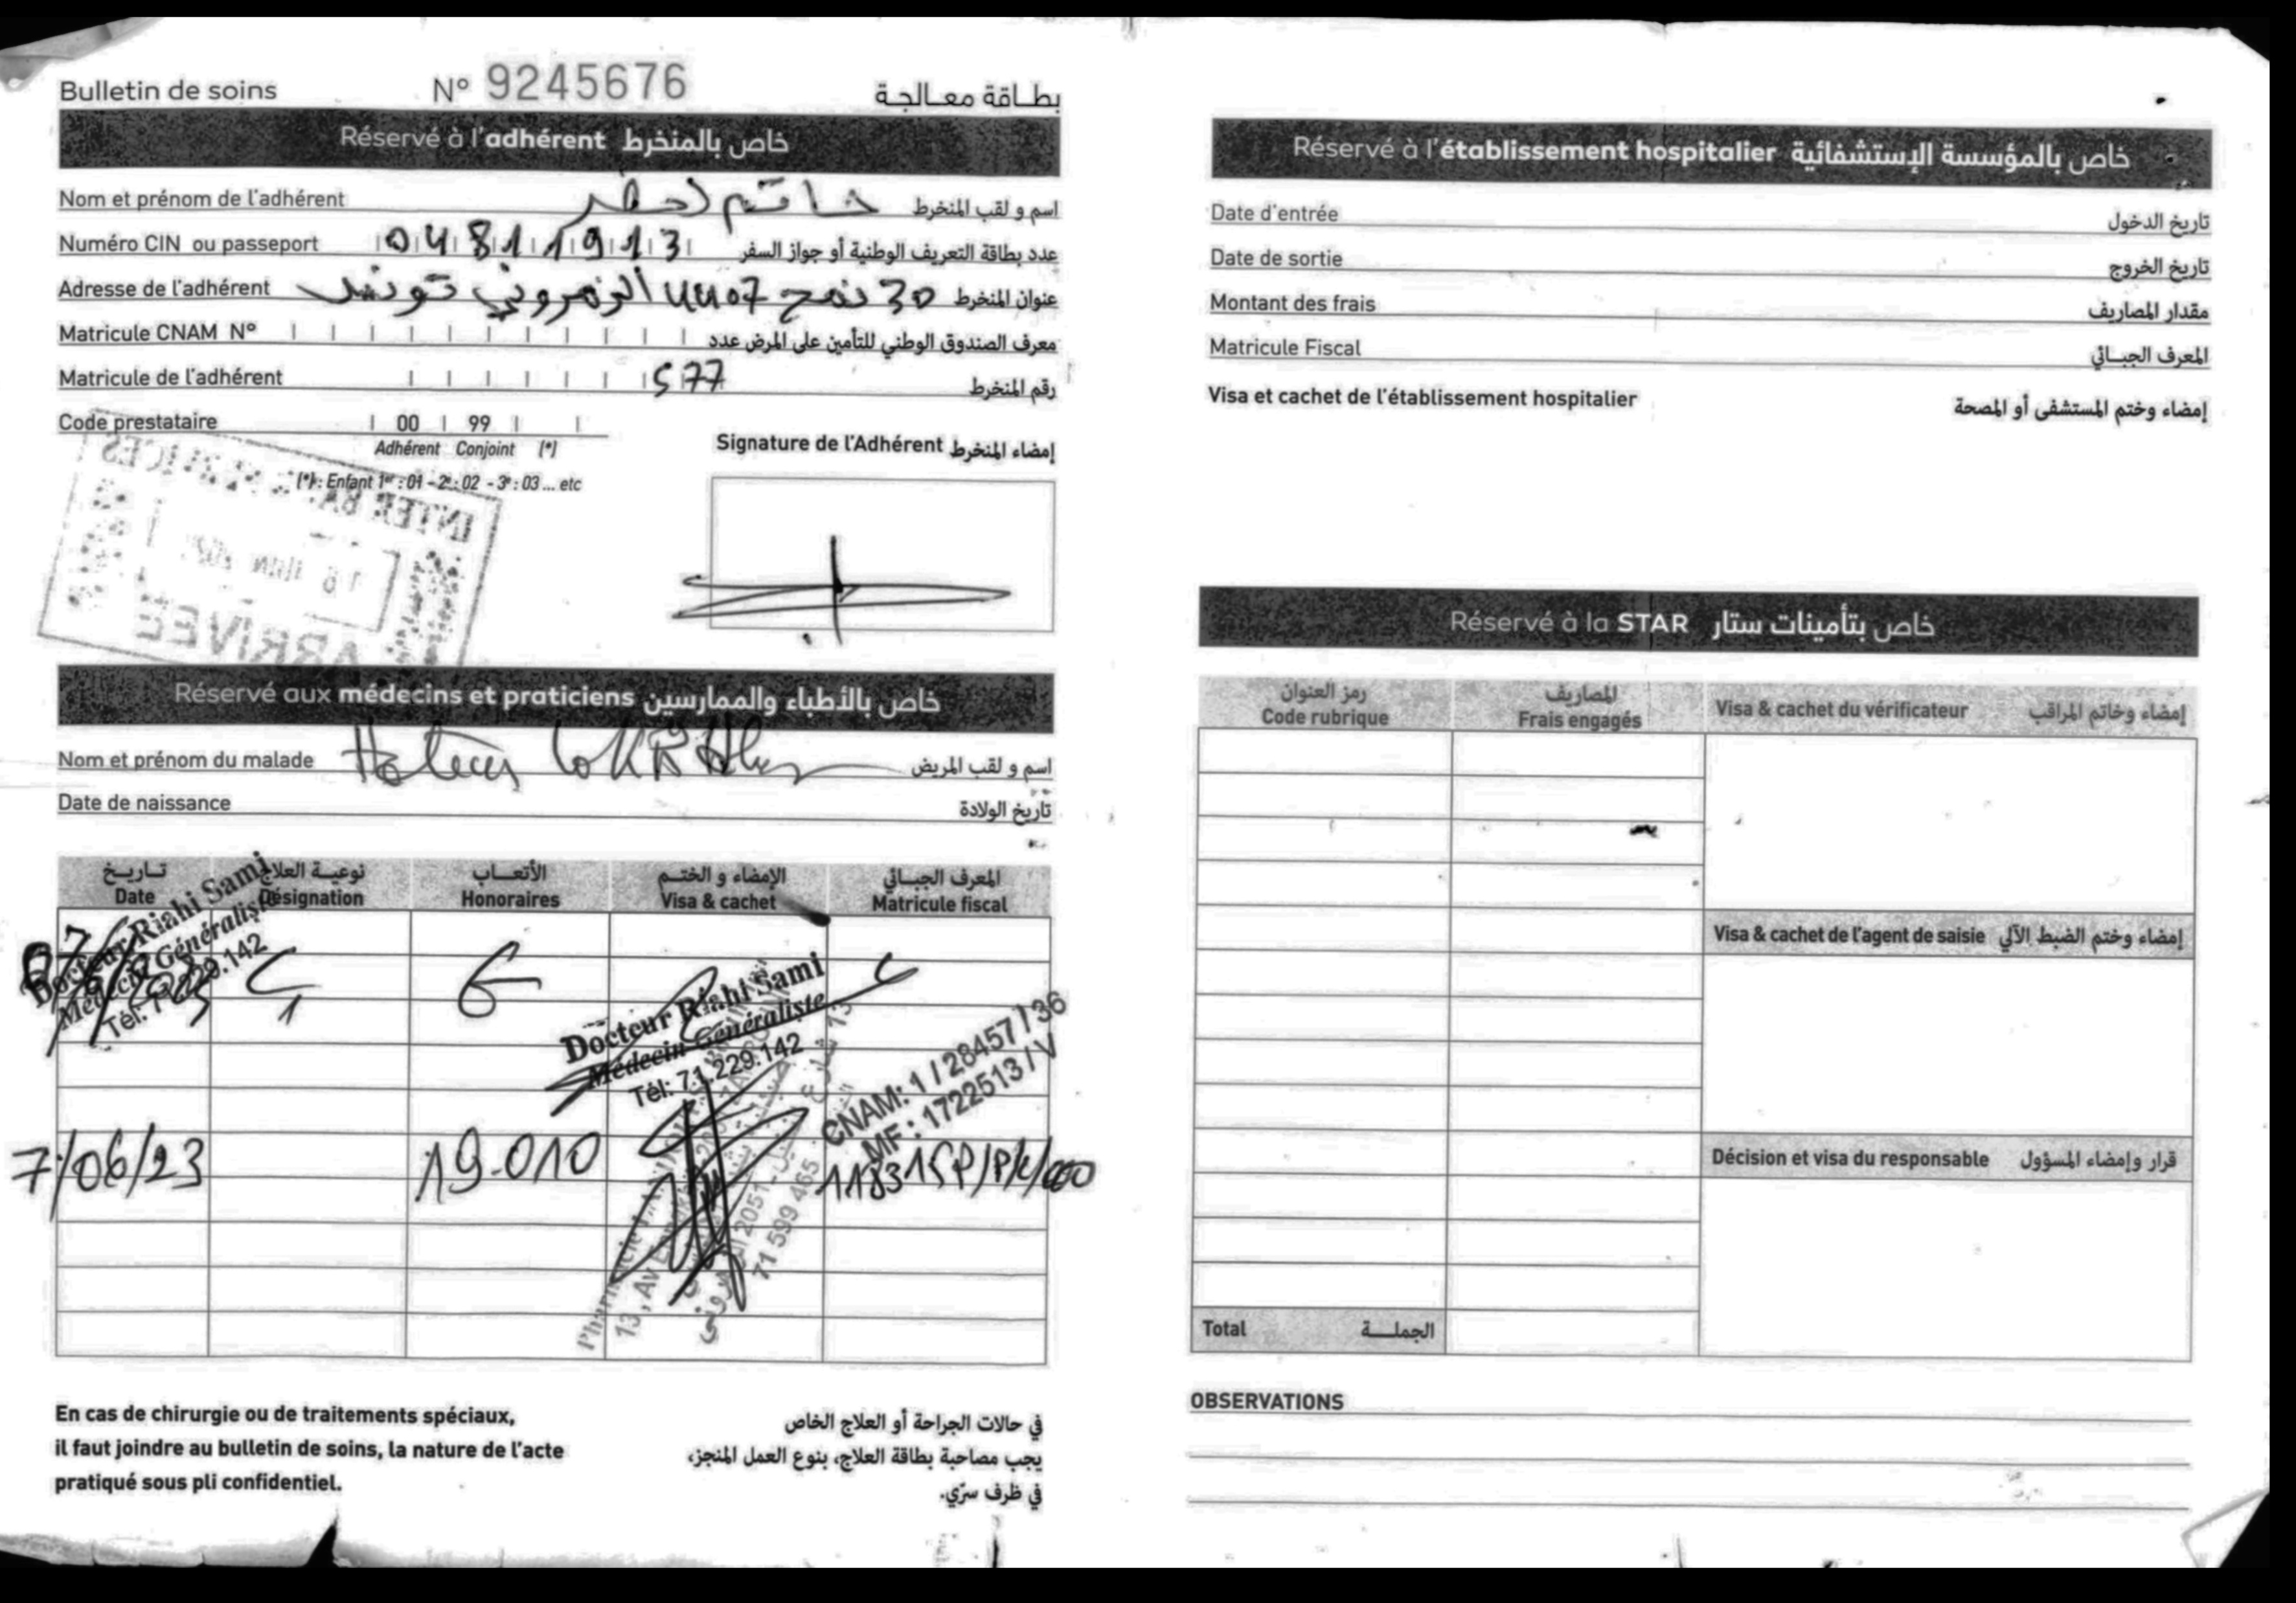 Bulletin de soins N° 9245676 بطاقة معالجة
Réservé à l'adhérent خاص بالمنخرط
Nom et prénom de l'adhérent خاتم لحظر اسم و لقب المنخرط
Numéro CIN ou passeport 04811913 عدد بطاقة التعريف الوطنية أو جواز السفر
Adresse de l'adhérent عنوان المنخرط 30 نهج 4407 الزهروني تونس
Matricule CNAM N° معرف الصندوق الوطني للتأمين على المرض عدد
Matricule de l'adhérent 577 رقم المنخرط
Code prestataire 00 99
Adhérent Conjoint (*)
(*): Enfant 1er : 01 - 2e : 02 - 3e : 03 ... etc
Signature de l'Adhérent إمضاء المنخرط
ARRIVEE
Réservé aux médecins et praticiens خاص بالأطباء والممارسين
Nom et prénom du malade Hatem اسم و لقب المريض
Date de naissance تاريخ الولادة
تاريخ نوعية العلاج الأتعاب الإمضاء و الختم المعرف الجبائي
Date Désignation Honoraires Visa & cachet Matricule fiscal
Docteur Riahi Sami
Médecin Généraliste
Tél: 71.229.142
C1
Docteur Riahi Sami
Médecin Généraliste
Tél: 71.229.142
CNAM: 1 / 28457 / 36
MF : 1722513 / V
7/06/23 19.010 118315P/P/C/000
71 599 465
En cas de chirurgie ou de traitements spéciaux,
il faut joindre au bulletin de soins, la nature de l'acte
pratiqué sous pli confidentiel.
في حالات الجراحة أو العلاج الخاص
يجب مصاحبة بطاقة العلاج، بنوع العمل المنجز،
في ظرف سرّي.
Réservé à l'établissement hospitalier خاص بالمؤسسة الإستشفائية
Date d'entrée تاريخ الدخول
Date de sortie تاريخ الخروج
Montant des frais مقدار المصاريف
Matricule Fiscal المعرف الجبائي
Visa et cachet de l'établissement hospitalier إمضاء وختم المستشفى أو المصحة
Réservé à la STAR خاص بتأمينات ستار
رمز العنوان المصاريف
Code rubrique Frais engagés Visa & cachet du vérificateur إمضاء وخاتم المراقب
Visa & cachet de l'agent de saisie إمضاء وختم الضبط الآلي
Décision et visa du responsable قرار وإمضاء المسؤول
Total الجملة
OBSERVATIONS